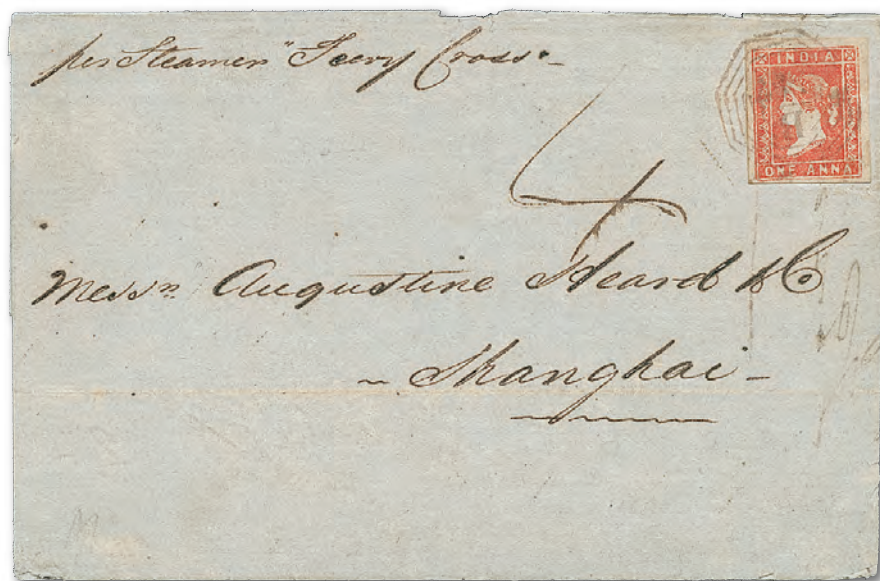 per Steamer "Feery Cross"
INDIA
4
ONE ANNA
Messrs Augustine Heard & Co
- Shanghai -